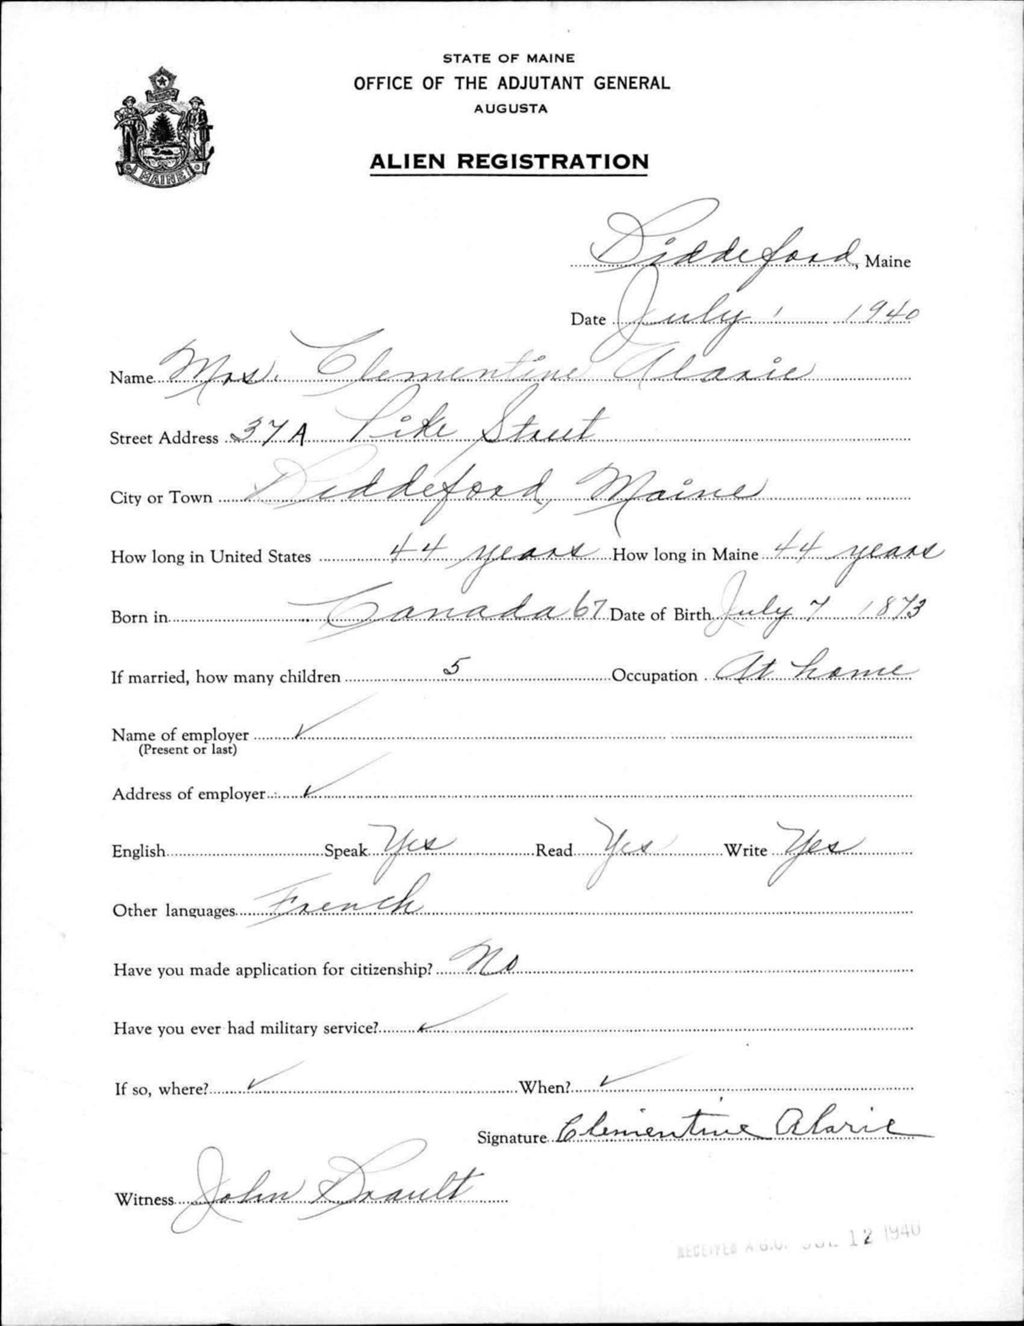 STATE OF MAINE
OFFICE OF THE ADJUTANT GENERAL
AUGUSTA
MAINE
ALIEN REGISTRATION
Biddeford, Maine
Date July 1 1940
Name Mrs. Clementine Alarie
Street Address 37A Pike Street
City or Town Biddeford, Maine
How long in United States 44 years How long in Maine 44 years
Born in Canada 67 Date of Birth July 7 1873
If married, how many children 5 Occupation At home
Name of employer ✓
(Present or last)
Address of employer ✓
English Speak Yes Read Yes Write Yes
Other languages French
Have you made application for citizenship? No
Have you ever had military service? ✓
If so, where? ✓ When? ✓
Signature Clementine Alarie
Witness John Brault
RECEIVED A.G.O. JUL 12 1940